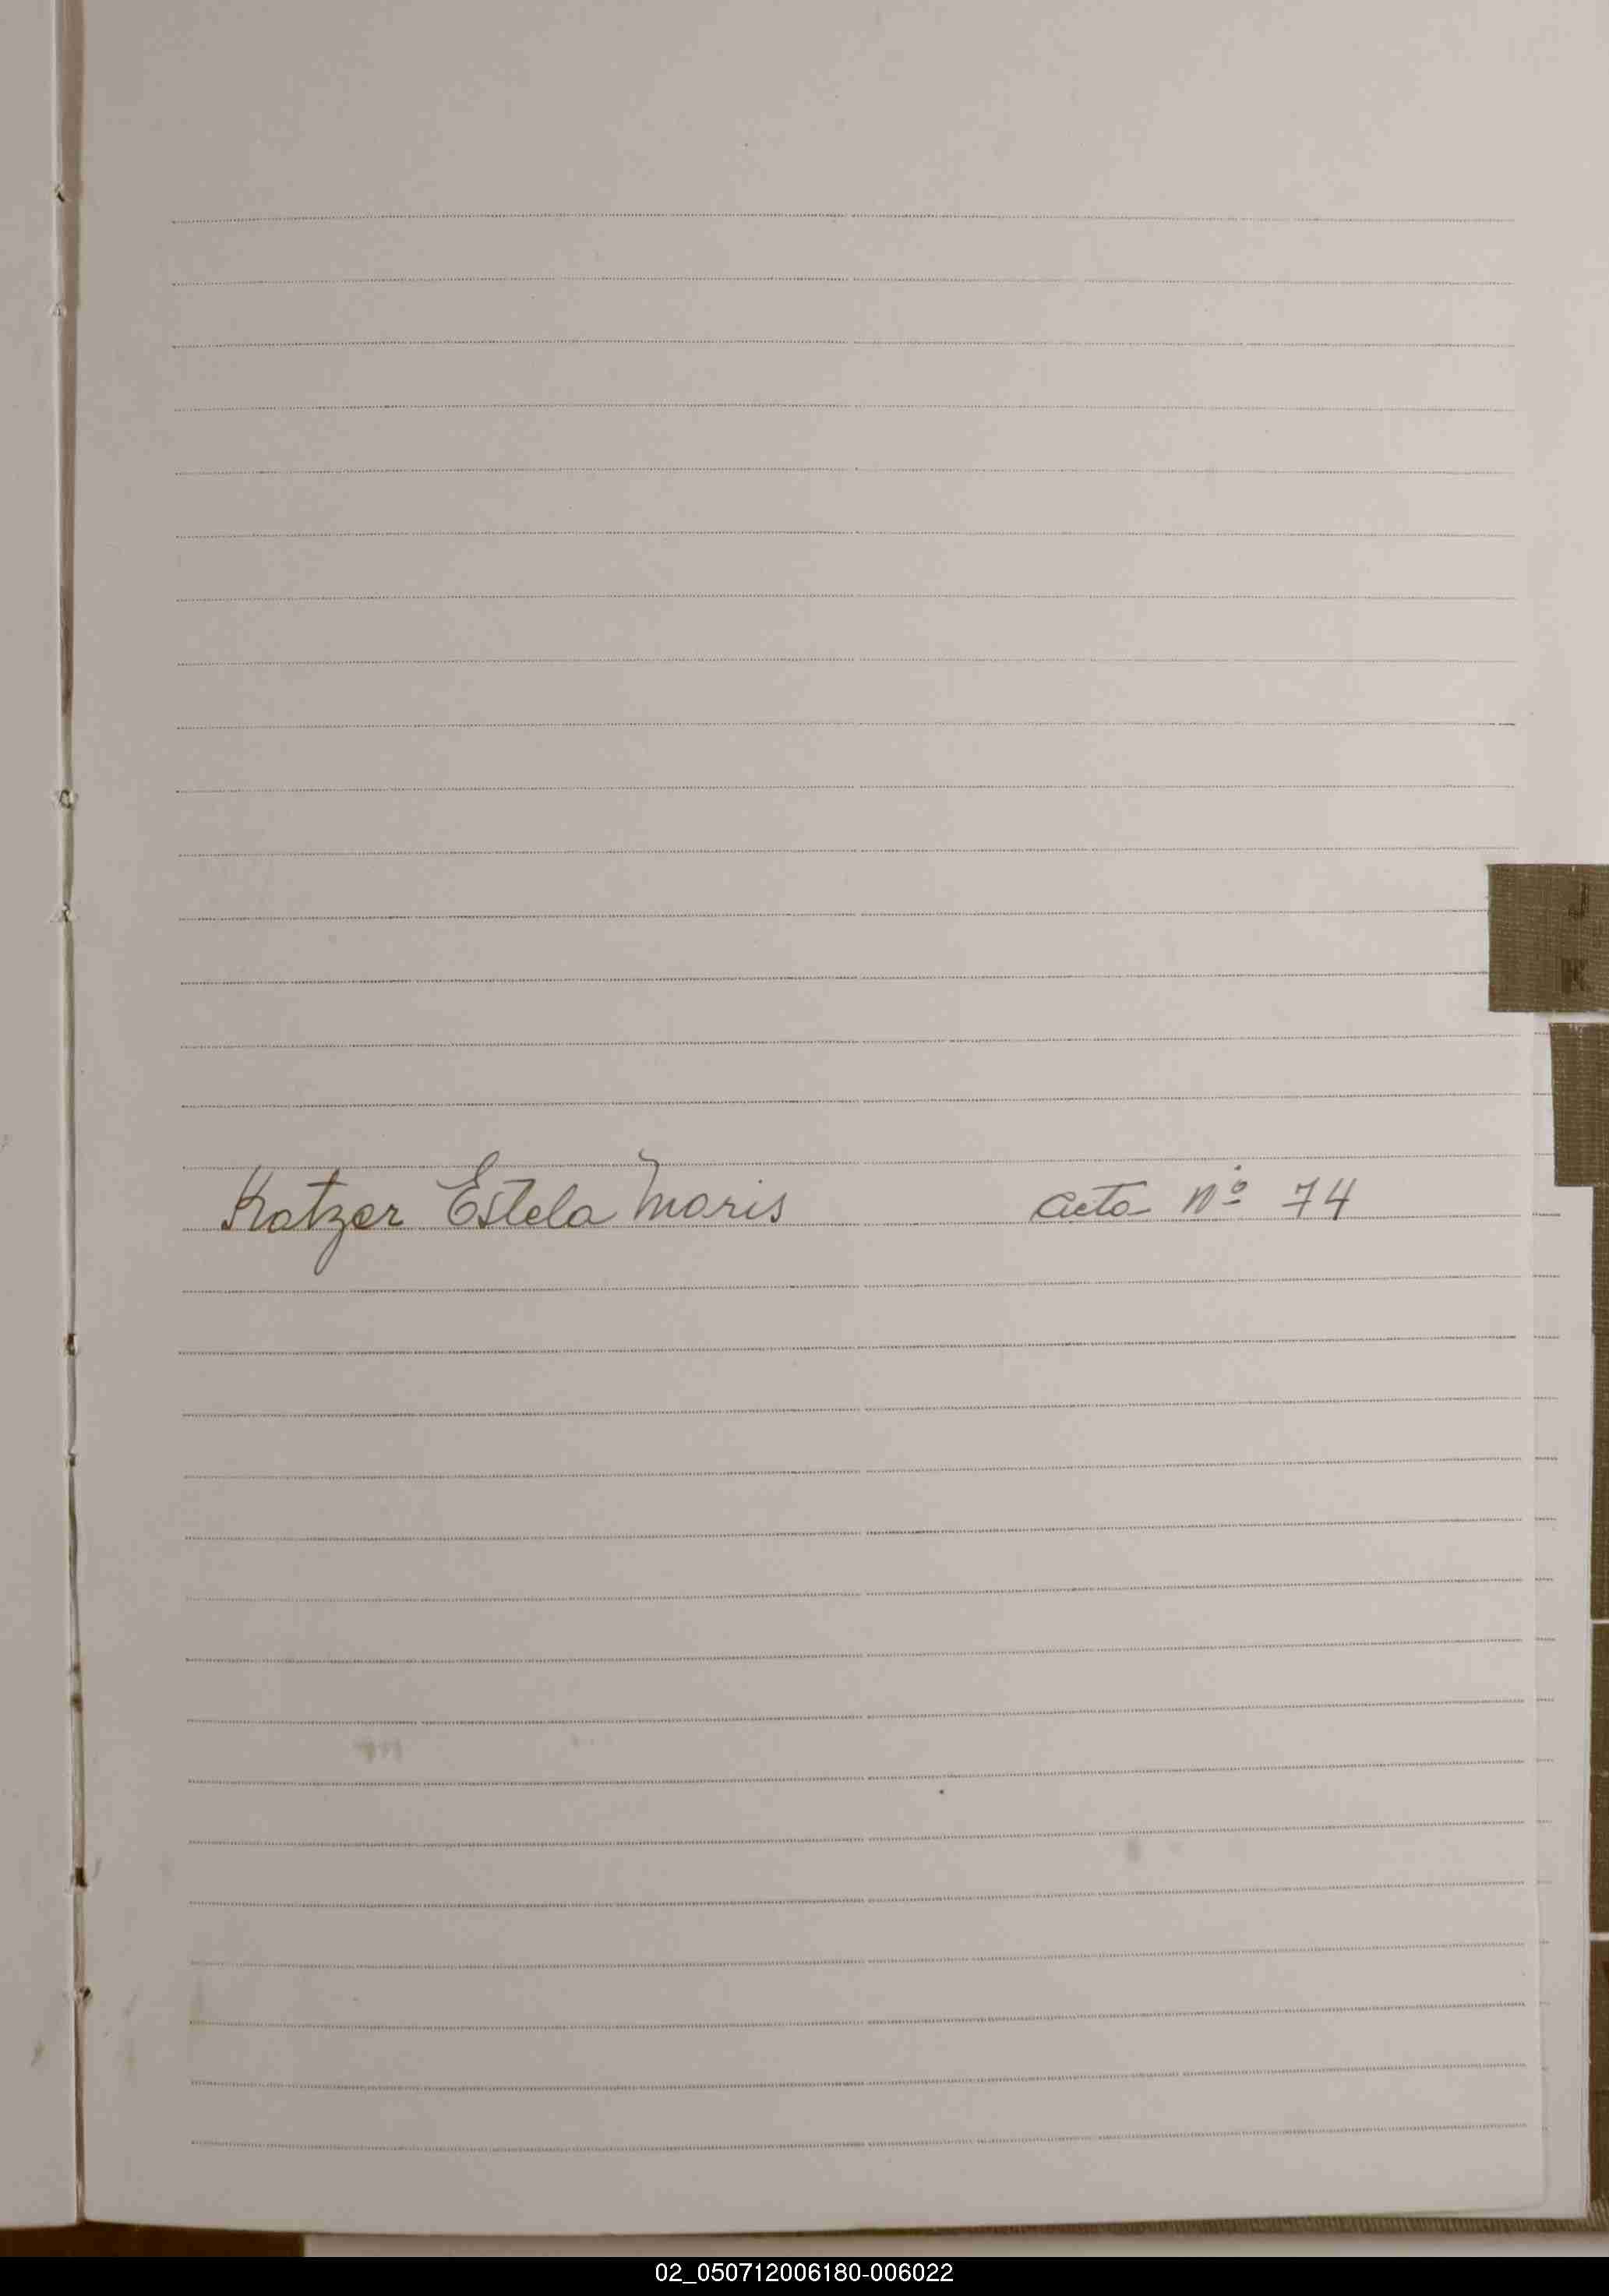 J
K
Katzer Estela Maris acta Nº 74
02_050712006180-006022